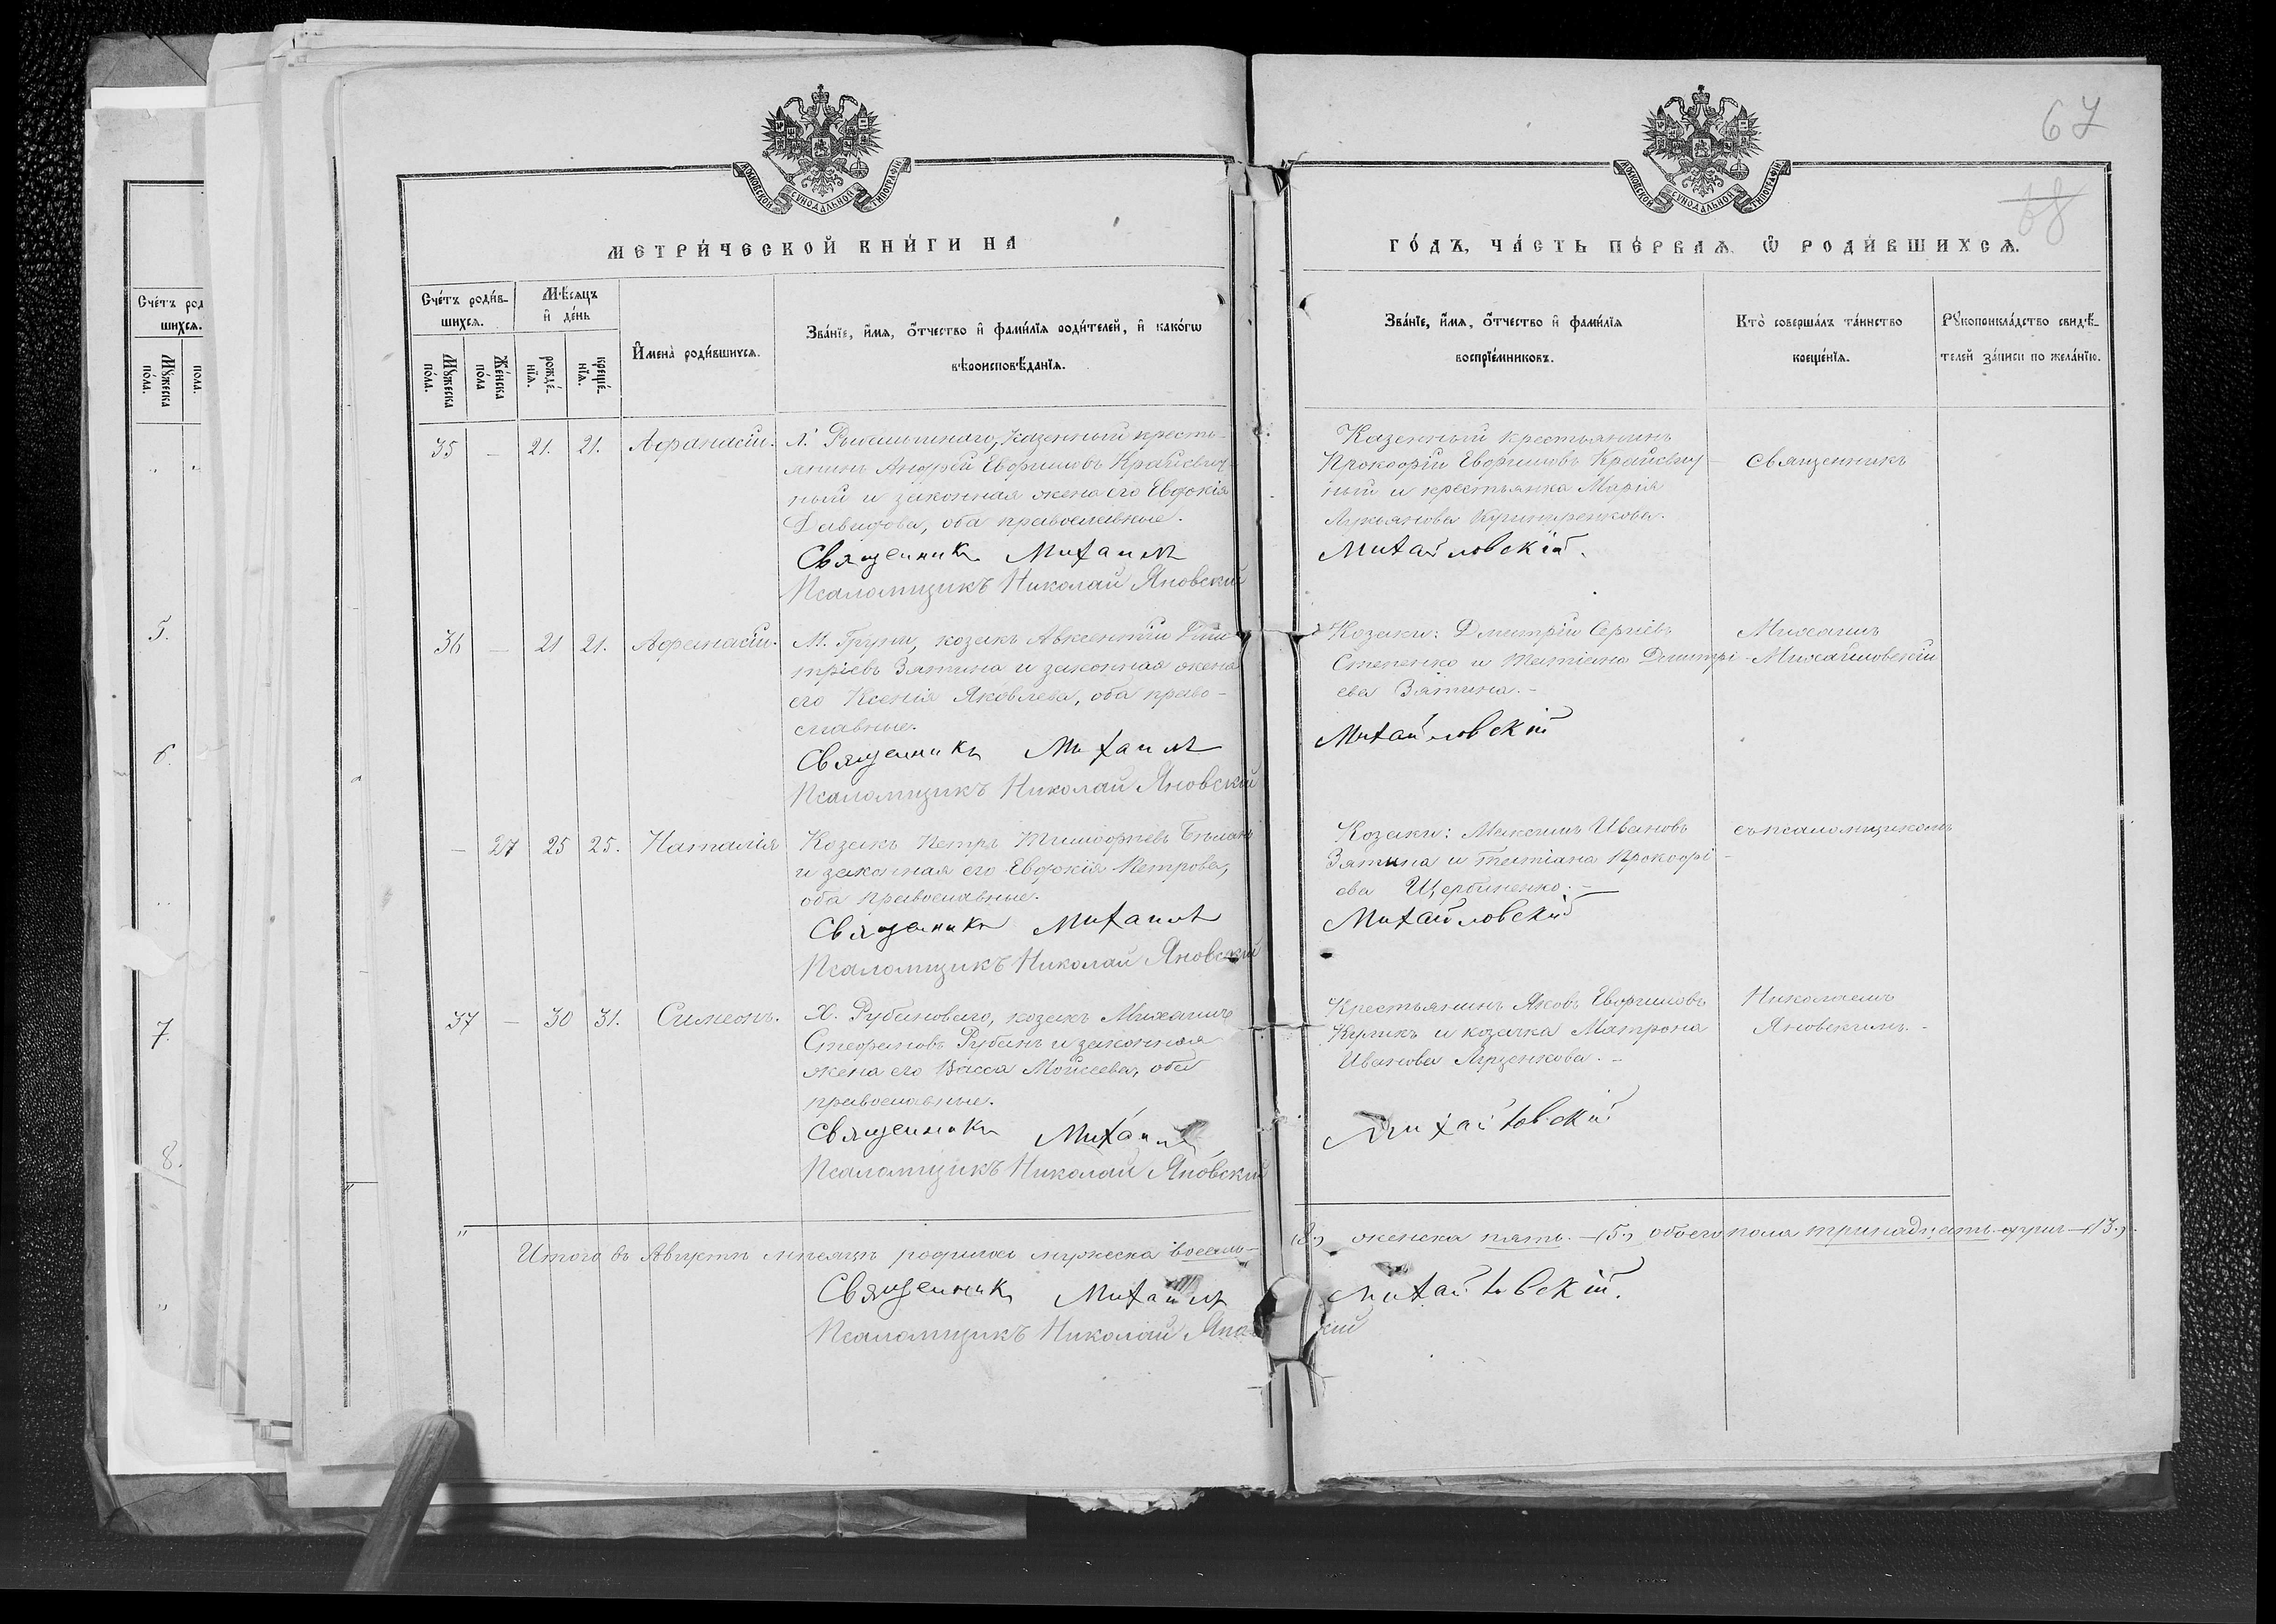 67
68
МОСКОВСКОЙ СѴНОДАЛЬНОЙ ТИПОГРАФІИ
МОСКОВСКОЙ СѴНОДАЛЬНОЙ ТИПОГРАФІИ
МЕТРИ́ЧЕСКОЙ КНИ́ГИ НА
ГО́ДЪ, ЧА́СТЬ ПЕ́РВАѦ, Ѽ РОДИ́ВШИХСѦ.
Сче́тъ роди́в-
шихсѧ.
Мꙋжеска
по́ла.
Же́нска
по́ла
Мѣ́сѧцъ
и҆ де́нь
рожде́-
нїѧ.
креще́-
нїѧ.
И҆мена̀ роди́вшихсѧ.
Зва́нїе, и҆́мѧ, ѻ҆́тчество и҆ фами́лїѧ роди́телей, и҆ како́гѡ
вѣроисповѣ́данїѧ.
Зва́нїе, и҆́мѧ, ѻ҆́тчество и҆ фами́лїѧ
воспрїе́мниковъ.
Кто̀ соверша́лъ та́инство
креще́нїѧ.
Рꙋкоприкла́дство свидѣ́-
телей за́писи по жела́нїю.
35 - 21. 21. Афанасій.
казенный кресть-
янинъ Андрей Евфимовъ
ный и законная жена его Евдокія
Давидова, оба православные.
Священникъ Михаилъ
Псаломщикъ Николай Яновскій
Казенный крестьянинъ
Прокофій Евфимовъ
ный и крестьянка Марія
Лукьянова
Михайловскій.
Священникъ
36 - 21 21. Афанасій.
М. Груни, козакъ Авксентій Дми-
тріевъ Зятина и законная жена
его Ксенія Яковлева, оба право-
славные.
Священникъ Михаилъ
Псаломщикъ Николай Яновскій
Козаки: Дмитрій Сергіевъ
Степенко и Татіана Дмитрі-
ева Зятина.-
Михайловскій
Михаилъ
Михайловскій
- 27 25 25. Наталія
Козакъ Петръ Тимофіевъ
и законная его Евдокія Петрова,
оба православные.
Священникъ Михаилъ
Псаломщикъ Николай Яновскій
Козаки: Максимъ Ивановъ
Зятина и Татіана Прокофі-
ева Щербиненко.-
Михайловскій
съ псаломщикомъ
37 - 30 31. Симеонъ.
Х. Рубановаго, козакъ Михаилъ
Стефановъ Рубанъ и законная
жена его Васса Мойсеева, оба
православные.
Священникъ Михаилъ
Псаломщикъ Николай Яновскій
Крестьянинъ Яковъ Евфимовъ
Куликъ и козачка Матрона
Иванова Луценкова.-
Михайловскій
Николаемъ
Яновскимъ.-
Итого въ Августѣ мѣсяцѣ родилось мужеска восемь- (8.) женска пять.-(5.) обоего пола тринадцать душъ-(13.).
Священникъ Михаилъ Михайловскій.
Псаломщикъ Николай Яновскій
Сче́тъ род
шихсѧ.
Мꙋжеска
по́ла.
пола.
5.
6.
7.
8.